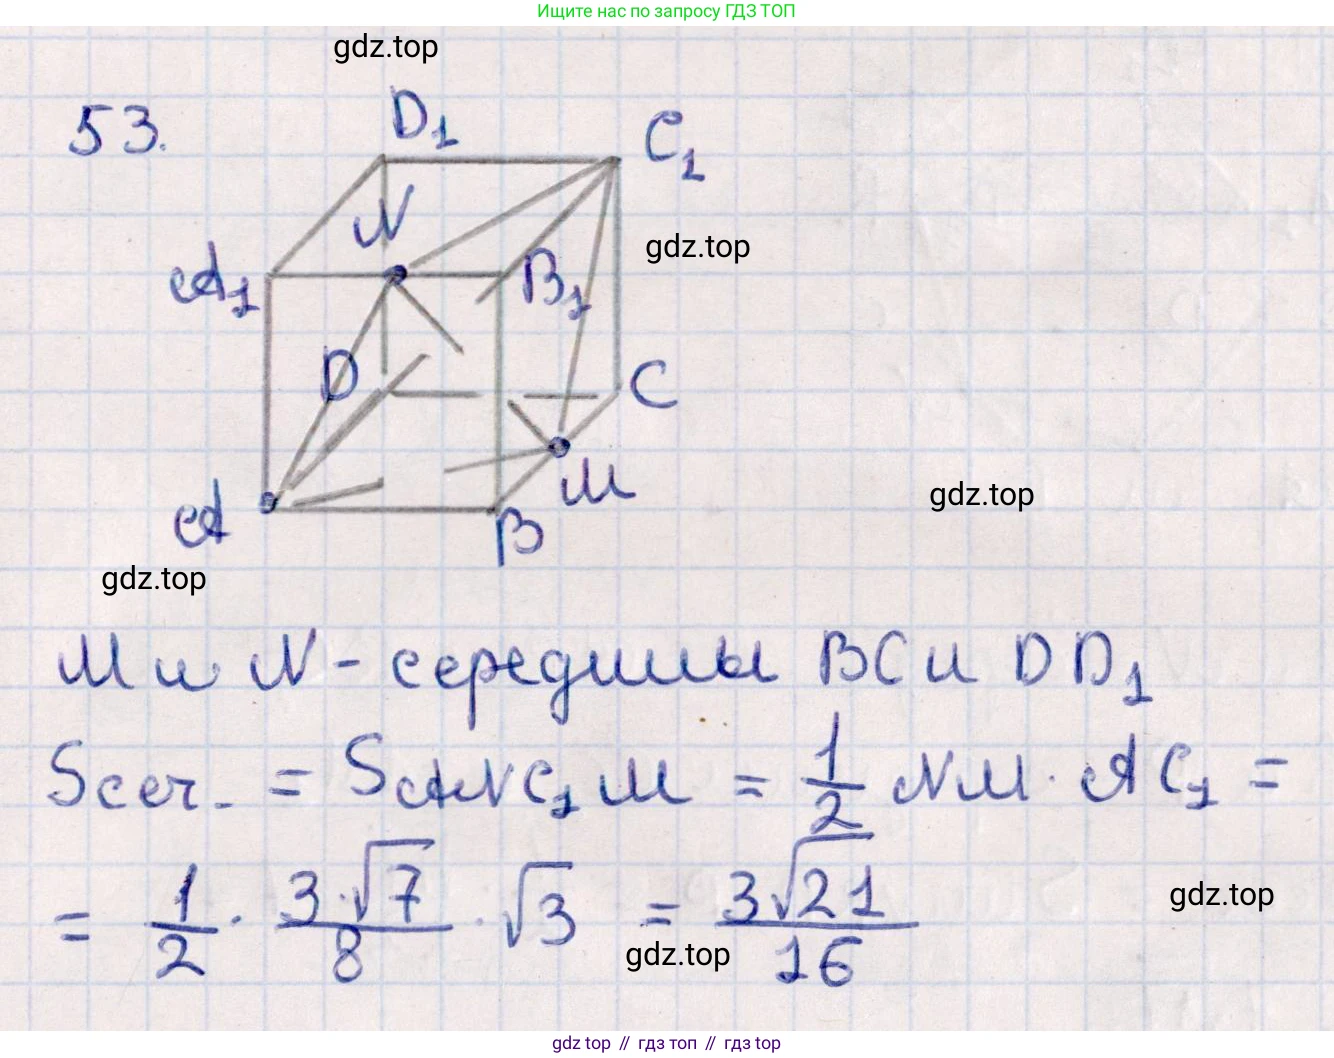 Ищите нас по запросу ГДЗ ТОП
gdz.top
53.
D₁
C₁
N
gdz.top
A₁
B₁
D
C
M
gdz.top
A
B
gdz.top
M и N - середины BC и DD₁
Sсеч. = SANC₁M = 1/2 NM · AC₁ =
= 1/2 · 3·√7/8 · √3 = 3√21/16
gdz.top
gdz.top
gdz top // гдз топ // gdz top